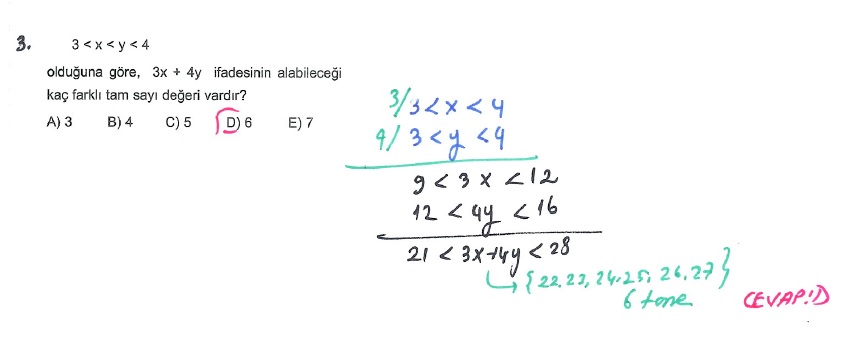 3. 3 < x < y < 4
olduğuna göre, 3x + 4y ifadesinin alabileceği
kaç farklı tam sayı değeri vardır?
A) 3 B) 4 C) 5 D) 6 E) 7
3/ 3 < x < 4
4/ 3 < y < 4
9 < 3x < 12
12 < 4y < 16
21 < 3x+4y < 28
{22,23,24,25,26,27}
6 tane
CEVAP:D